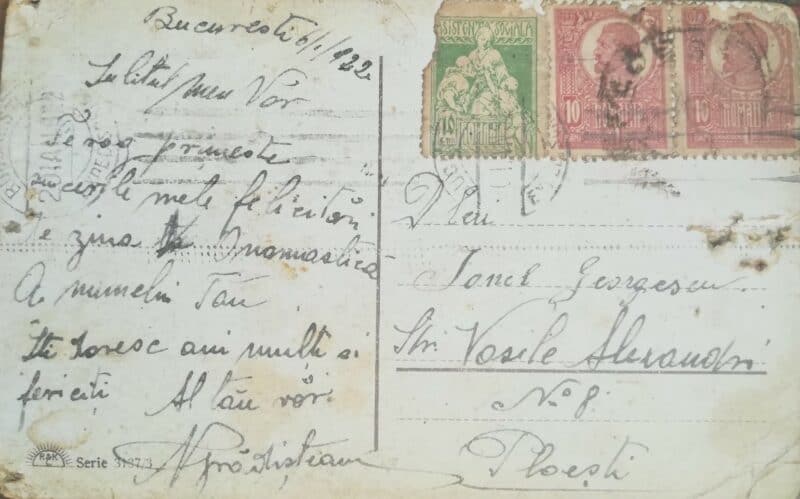 București 6/I/922
Iubitul meu Văr
Te rog primește
sincerile mele felicitări
de ziua Onomastică
A numelui Tău
Îți doresc ani mulți si
fericiți Al tău văr
R&K
Serie 3187/3
ASISTENȚA SOCIALA
10
10
ROMANIA
10
ROMANIA
Dlui
Ionel Georgescu
Str. Vasile Alexandri
No 8
Ploești